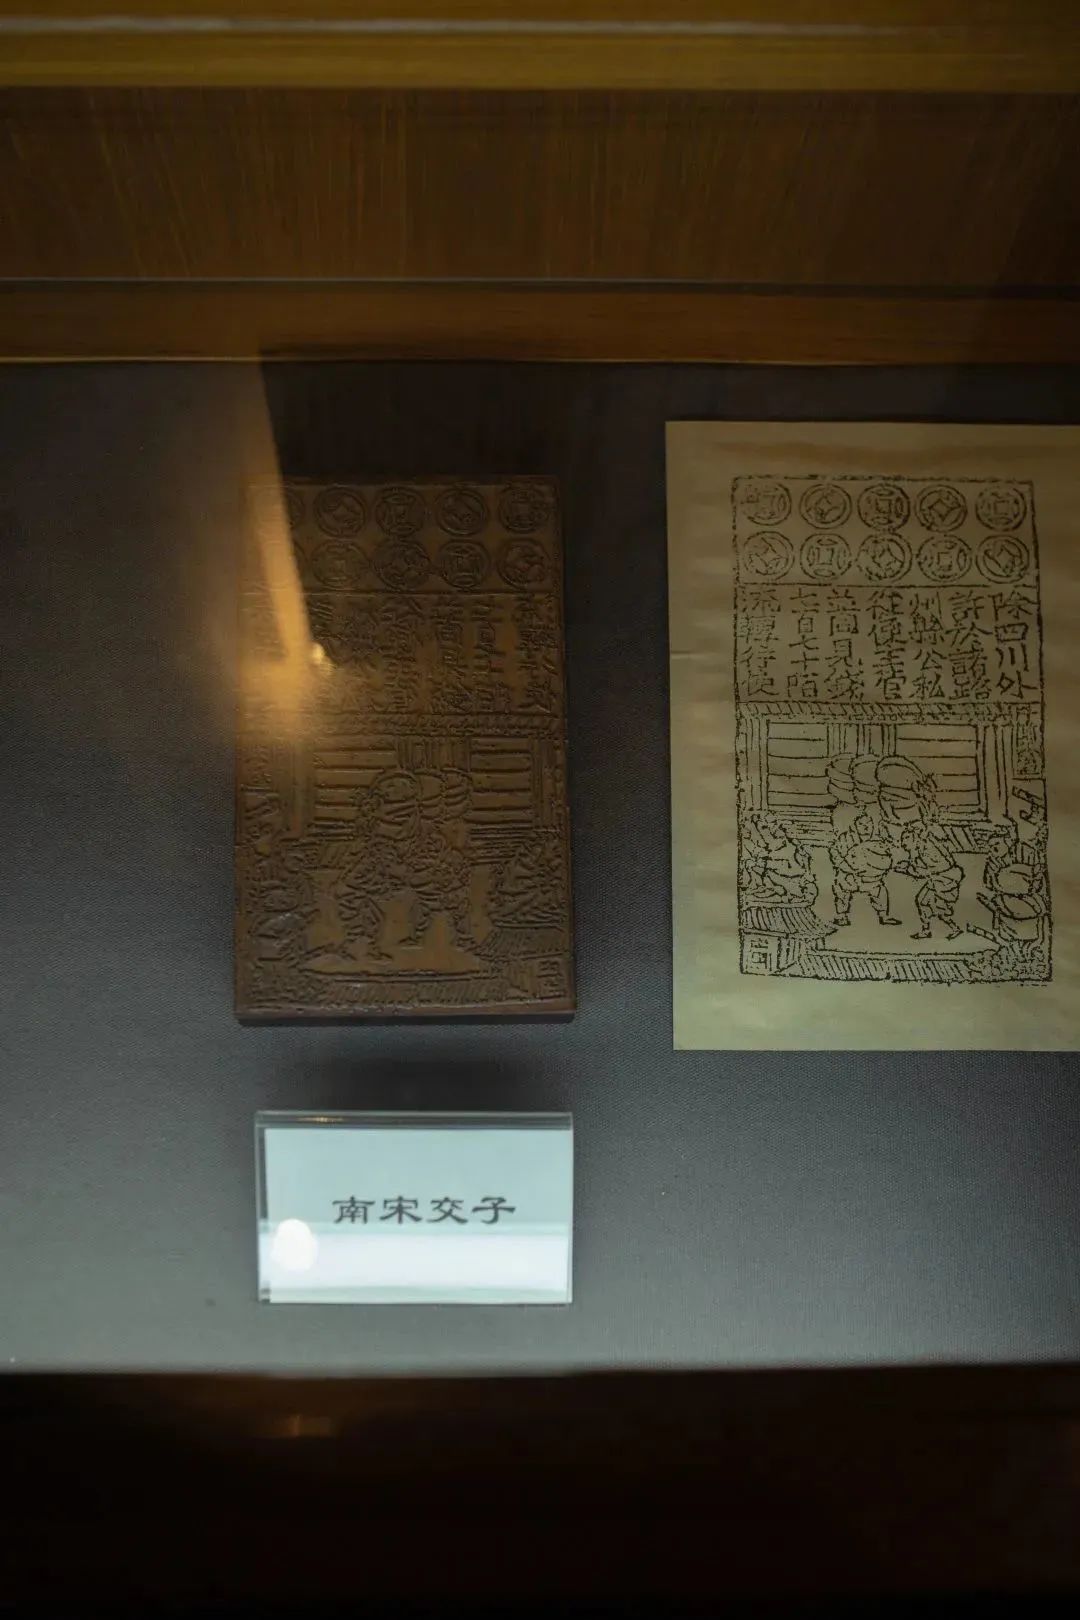 除四川外
許於諸路
州縣公私
從便主管
並同見錢
七百七十陌
流轉行使
南宋交子